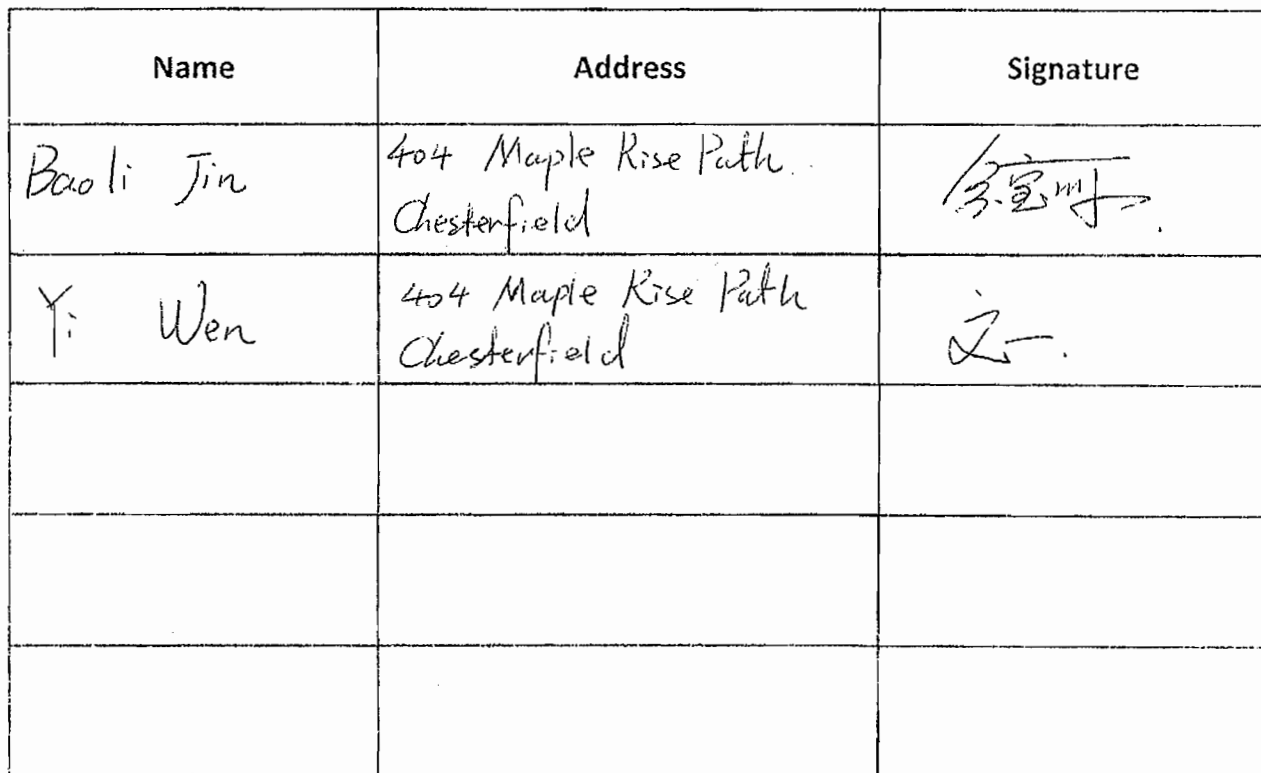 Name Address Signature
Baoli Jin
404 Maple Rise Path
Chesterfield
Yi Wen
404 Maple Rise Path
Chesterfield
文一.